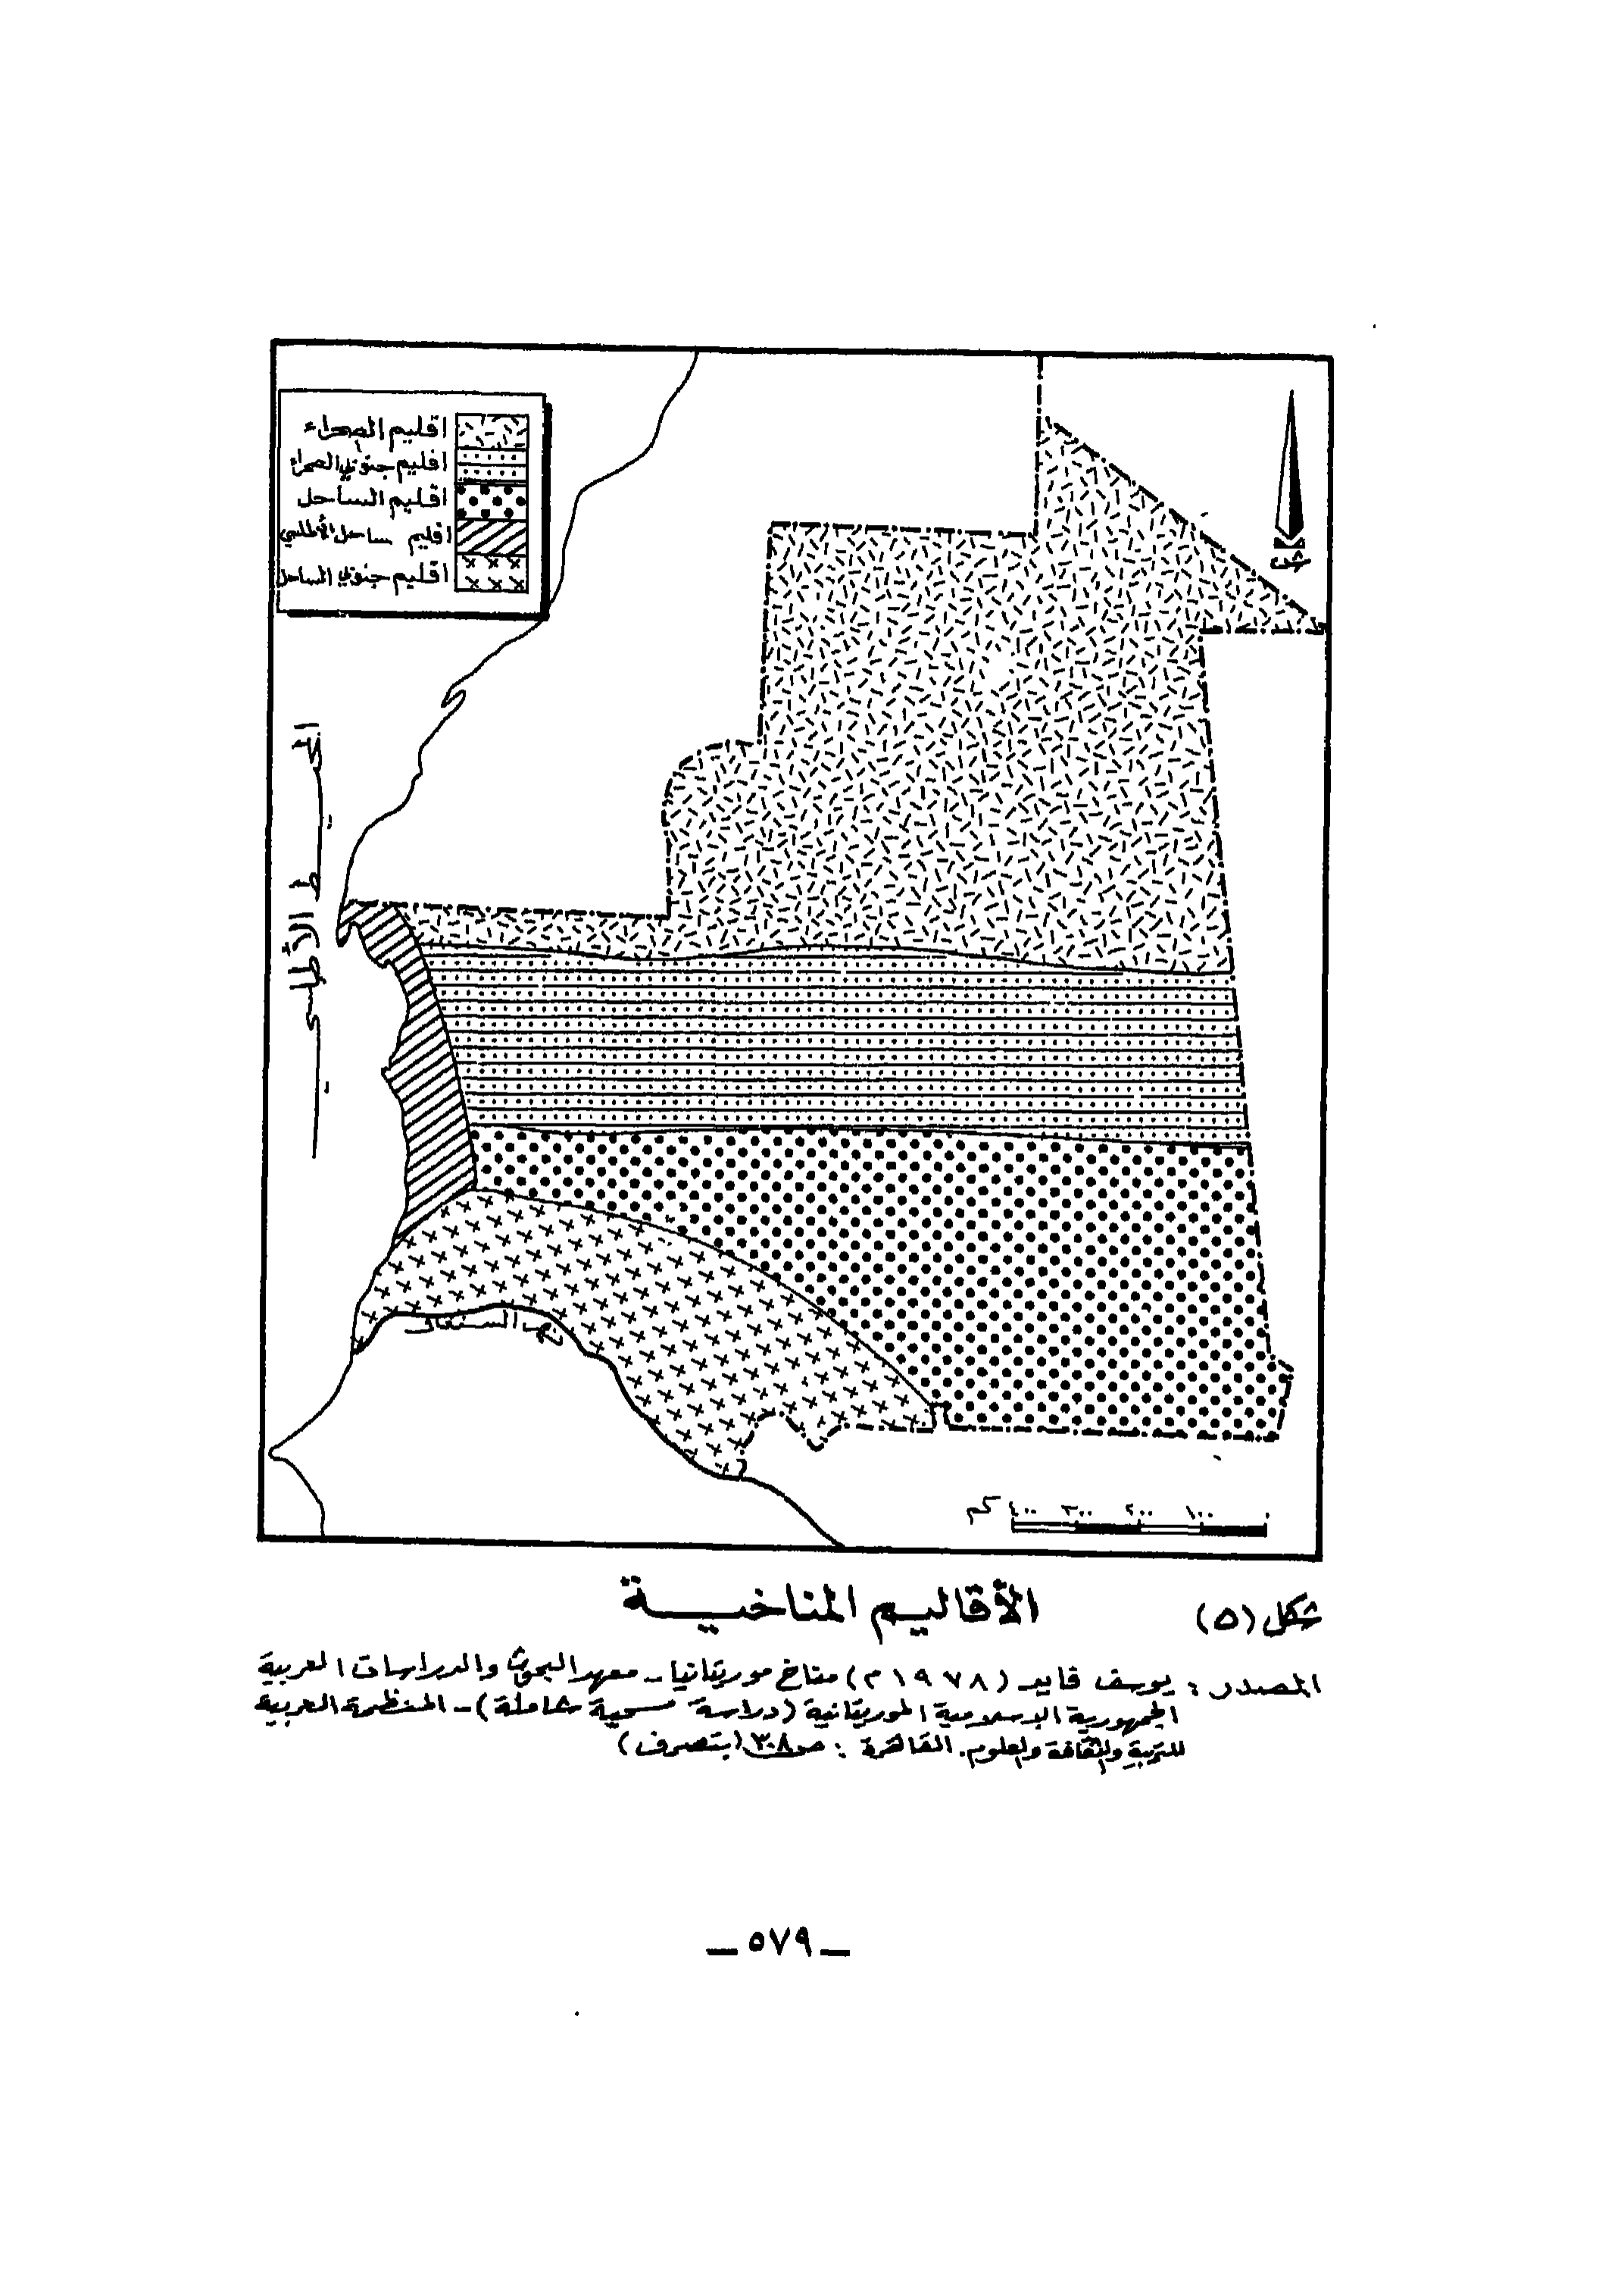 اقليم الصحراء
اقليم جنوبي الصحراء
اقليم الساحل
اقليم ساحل الأطلسي
اقليم جنوبي الساحل
شمال
المحيط الأطلسي
نهر السنغال
٠ ١٠٠ ٢٠٠ ٣٠٠ ٤٠٠ كم
شكل (٥) الأقاليم المناخية
المصدر : يوسف فايد (١٩٧٨ م) مناخ موريتانيا - معهد البحوث والدراسات العربية
الجمهورية الإسلامية الموريتانية (دراسة مسحية شاملة) - المنظمة العربية
للتربية والثقافة والعلوم. القاهرة : ص ٣٠٨ (بتصرف)
— ٥٧٩ —